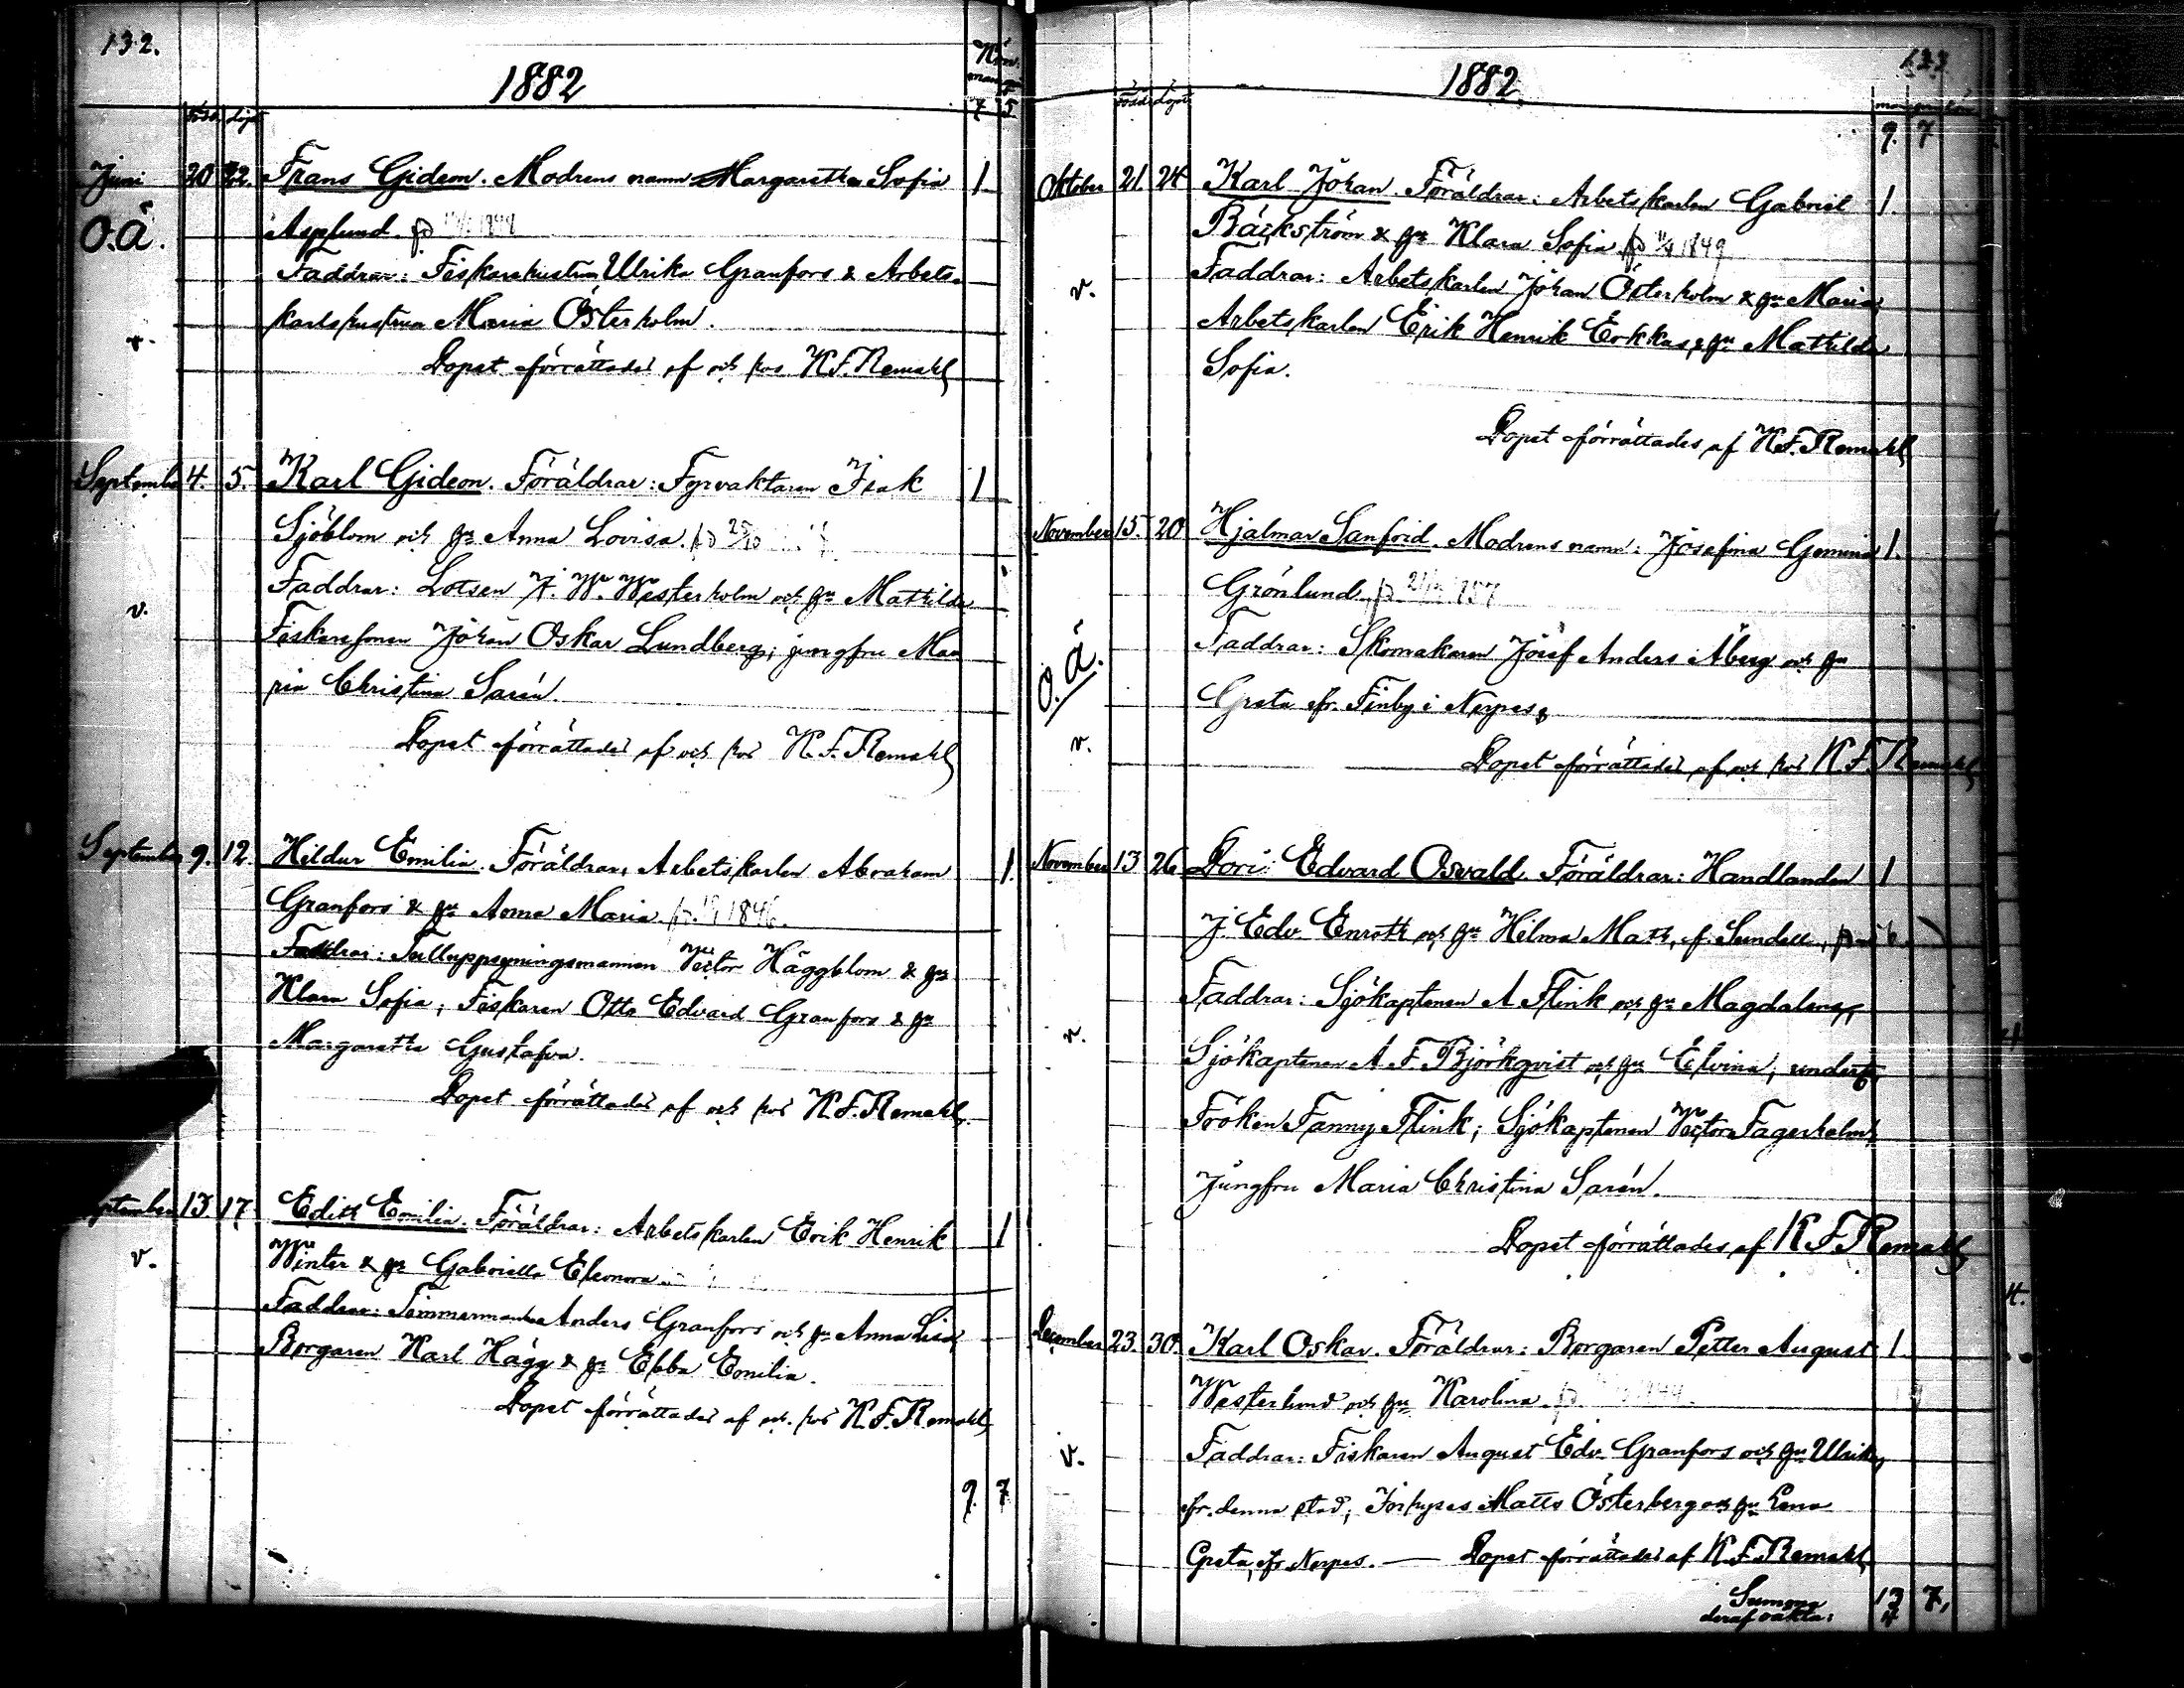 132.
1882
Kön.
man
7 5
född döpt
Juni 20 22. Frans Gideon. Modrens namn Margaretha Sofia 1
O.Ä. Asplund. fd 1844
Faddrar: Fiskarehustrun Ulrika Granfors & Arbets-
v. karlshustrun Maria Österholm.
Dopet förrättades af och hos K.F. Remahl
September 4. 5. Karl Gideon. Föräldrar: Fyrvaktaren Isak 1
Sjöblom och hu Anna Lovisa. fd 25/10
Faddrar: Lotsen J. W. Westerholm och hu Mathilda
v. Fiskaresonen Johan Oskar Lundberg; jungfru Ma-
ria Christina Sarén.
Dopet förrättades af och hos K.F. Remahl
September 9. 12. Hildur Emilia. Föräldrar: Arbetskarlen Abraham 1.
Granfors & hu Anna Maria. fd 1846.
Faddrar: Tulluppsyningsmannen Victor Häggblom & hu
Klara Sofia; Fiskaren Otto Edvard Granfors & hu
Margaretha Gustafva.
Dopet förrättades af och hos K.F. Remahl.
ptember 13 17. Edith Emilia. Föräldrar: Arbetskarlen Erik Henrik 1
v. Winter & hu Gabriella Eleonora
Faddrar: Timmermannen Anders Granfors och hu Anna Lisa
Borgaren Karl Hägg & hu Ebba Emilia.
Dopet förrättades af och hos K.F. Remahl
9. 7
133
1882.
född döpt
9. 7
Oktober 21. 24 Karl Johan. Föräldrar: Arbetskarlen Gabriel 1.
Bäckström & hu Klara Sofia fd 1849
v. Faddrar: Arbetskarlen Johan Österholm & hu Maria,
Arbetskarlen Erik Henrik Erkkus & hu Mathilda
Sofia.
Dopet förrättades af K.F. Remahl
November 15. 20 Hjalmar Sanfrid. Modrens namn: Josefina Gemina 1.
Grönlund fd 1857
O.Ä. Faddrar: Skomakaren Josef Anders Åberg och hu
Greta fr. Finby i Nerpes,
v. Dopet förrättades af och hos K.F. Remahl
November 13 26 Dori Edvard Osvald. Föräldrar: Handlanden 1
J Edv. Enroth och hu Hilma Math. f. Sundell,
Faddrar: Sjökaptenen A Flink och hu Magdalena,
v. Sjökaptenen A. F. Björkqvist och hu Elvina;
Fröken Fanny Flink; Sjökaptenen Victor Fagerholm,
Jungfru Maria Christina Sarén.
Dopet förrättades af K F Remahl
December 23. 30. Karl Oskar. Föräldrar: Borgaren Petter August 1.
Westerlund och hu Karolina. fd 1844
v. Faddrar: Fiskaren August Edv. Granfors och hu Ulrika,
fr. denna stad; Matts Österberg och hu Lena
Greta, fr Nerpes. — Dopet förrättades af K.F. Remahl
Summa 13 7,
deraf oäkta: 4
4.